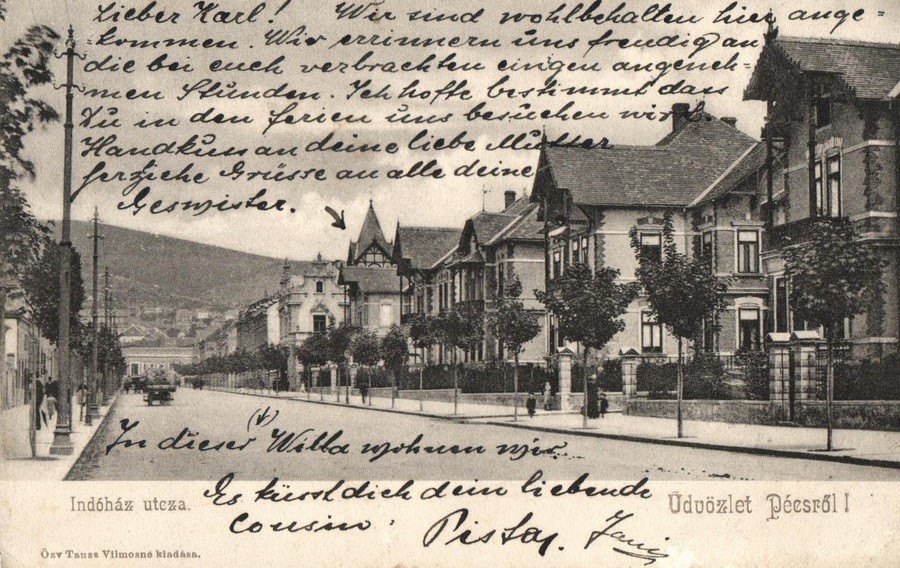 Lieber Karl! Wir sind wohlbehalten hier ange=
kommen. Wir errinnern uns freudig an
die bei euch verbrachten einigen angeneh=
men Stunden. Ich hoffe bestimmt dass
Du in den ferien uns besuchen wirst.
Handkuss an deine liebe Mutter
herzliche Grüsse an alle deine
Geswister.
In dieser (↓) Willa wohnen wir
Es küsst dich dein liebende
cousin: Pista
Indóház utcza.
Üdvözlet Pécsről!
Özv Tausz Vilmosné kiadása.